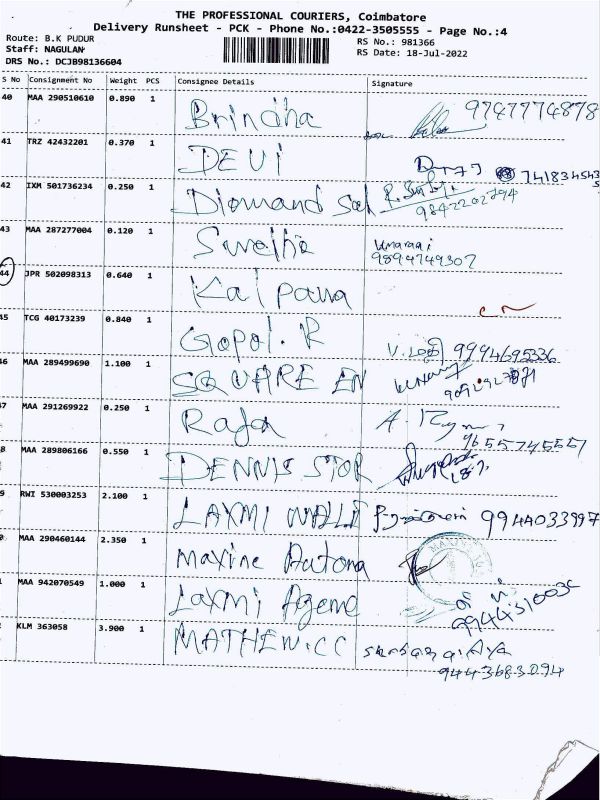 THE PROFESSIONAL COURIERS, Coimbatore
Delivery Runsheet - PCK - Phone No.:0422-3505555 - Page No.:4
Route: B.K PUDUR
RS No.: 981366
Staff: NAGULAN
RS Date: 18-Jul-2022
DRS No.: DCJB98136604
S No Consignment No Weight PCS Consignee Details Signature
40 MAA 290510610 0.890 1 Brindha 9747774878
41 TRZ 42432201 0.370 1 DEVI 741834543
42 IXM 501736234 0.250 1 Diomand Sal 9842202794
43 MAA 287277004 0.120 1 Swetha
9894749307
44 JPR 502098313 0.640 1 Kalpana
45 TCG 40173239 0.840 1 Gopol. R V. மதி 9994695336
46 MAA 289499690 1.100 1 SQUARE EN
47 MAA 291269922 0.250 1 Raja
9655745557
8 MAA 289806166 0.550 1 DENNIS STOR
9 RWI 530003253 2.100 1 LAXMI MALLI 9944033997
0 MAA 290460144 2.350 1 Maxine Automa
MAA 942070549 1.000 1 Laxmi Agenc
KLM 363058 3.900 1 MATHEW.CC
9443683094